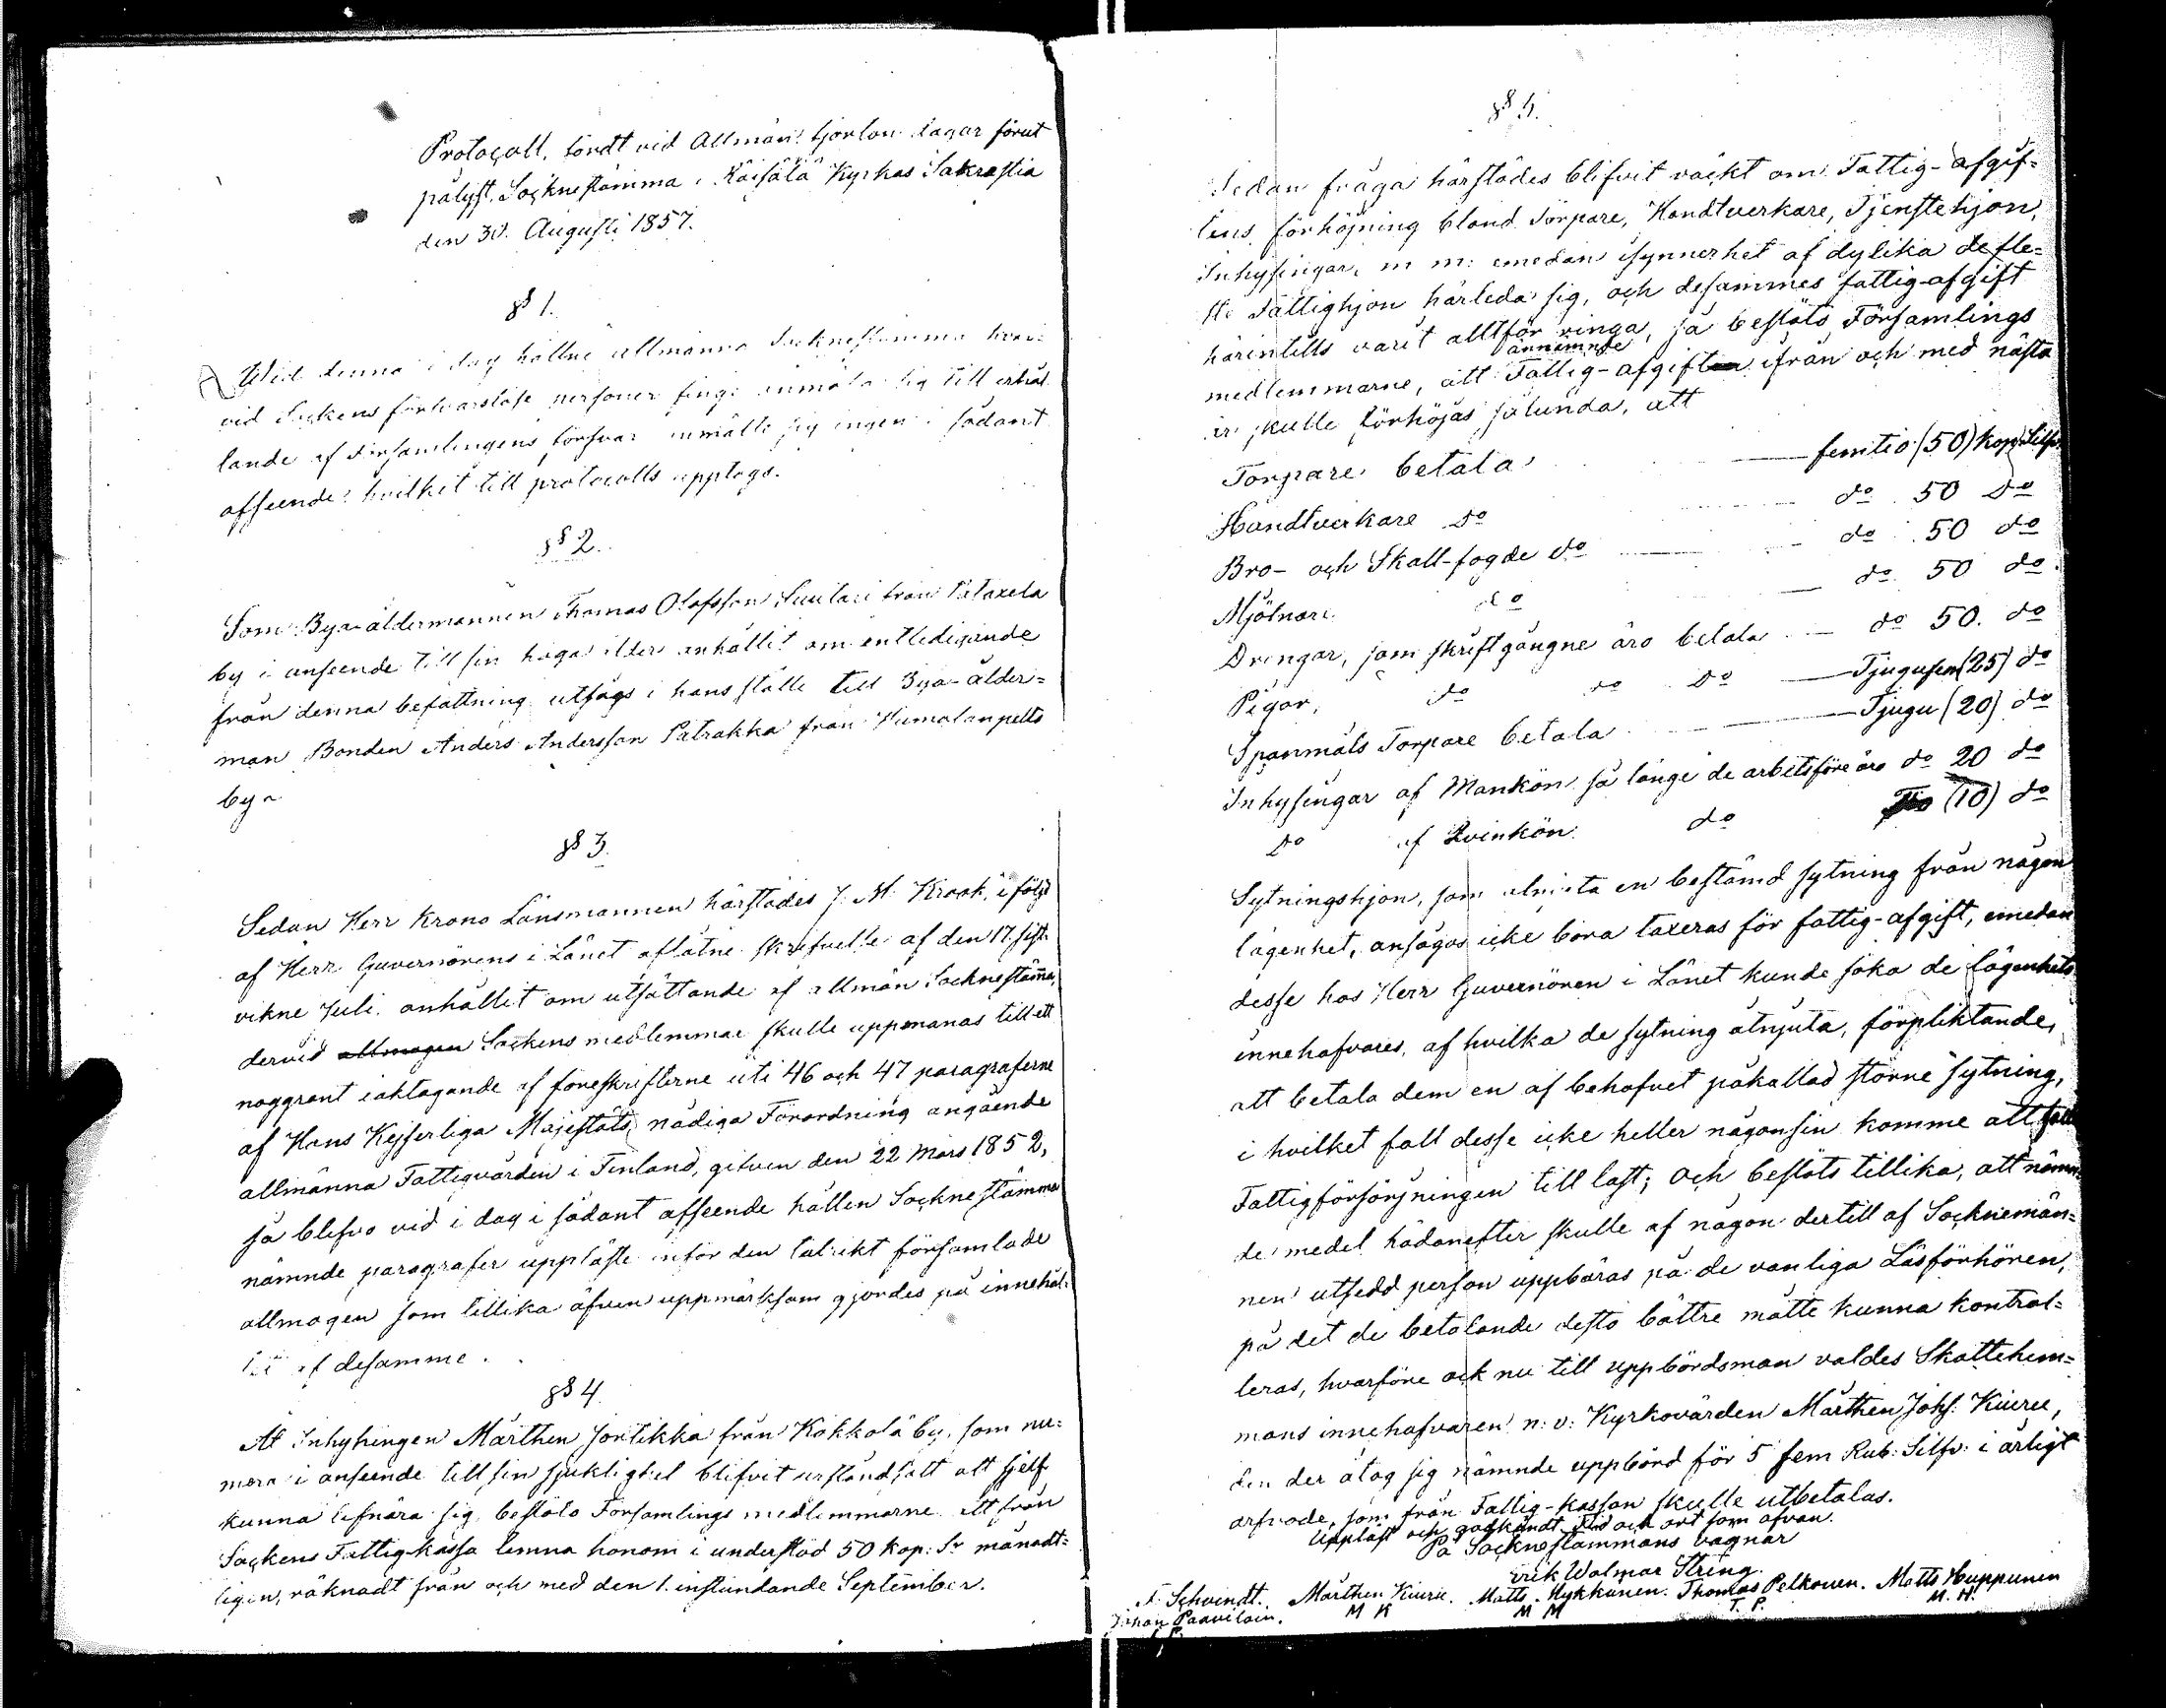 Protocoll, fördt vid Allmän fjorton dagar förut
pålyst Socknestämma i Räisälä Kyrkas Sakrastia
den 30. Augusti 1857.
§§ 1.
Wid denna i dag hållne allmänna Socknestämma hvar-
vid Sockens försvarslöse personer fingo anmäla sig till erhål-
lande af Församlingens försvar anmälte sig ingen i sådant
afseende hvilket till protocolls upptogs.
§§ 2.
Som Bya-åldermannen Thomas Olofsson Suutari från
by i anseende till sin höga ålder anhållit om entledigande
från denna befattning utsågs i hans ställe till Bya-ålder-
man Bonden Anders Andersson Patrakka från Humalanpelto
by.
§§ 3.
Sedan Herr Krono Länsmannen härstädes J. M. Krook, i följd
af Herr Guvernörens i Länet aflåtne skrifvelse af den 17 sist-
vikne Juli anhållit om utsättande af allmän Sockneståmma,
dervid allmogen Sockens medlemmar skulle uppmanas till ett
noggrant iakttagande af föreskrifterne uti 46 och 47 paragraferne
af Hans Kejserliga Majestäts nådiga Förordning angående
allmänna Fattigvården i Finland, gifven den 22 Mars 1852,
så blefvo vid i dag i sådant afseende hållen Socknestämma
nämnde paragrafer uppläste inför den talrikt församlade
allmogen som tillika äfven uppmärksam gjordes på innehål-
let af desamme.
§§ 4.
At Inhysingen Mårthen Jortikka från Kokkola by, som nu-
mera i anseende till sin sjuklighet blifvit urståndsatt att sjelf
kunna lifnära sig, beslöto Församlings medlemmarne att från
Sockens Fattig-kassa lemna honom i understöd 50 kop: Sr månadt-
ligen, räknadt från och med den 1. instundande September.
§§ 5.
Sedan fråga härstädes blifvit väckt om Fattig-afgif-
tens förhöjning bland Torpare, Handtverkare, Tjenstehjon,
Inhysingar, m m: emedan isynnerhet af dylika de fle-
ste Fattighjon härleda sig, och desammes fattig-afgift
härintills varit alltför ringa, så beslöto Församlings
medlemmarne, att annämnde Fattig-afgiften ifrån och med nästa
år skulle förhöjas sålunda, att
Torpare betala femtio (50) kop. Silfr.
Handtverkare do do 50 do
Bro- och Skall-fogde do do 50 do
Mjölnare do do 50 do
Drengar, som skriftgångne äro betala do 50. do
Pigor, do do do Tjugufem (25) do
Spanmåls Torpare betala Tjugu (20) do
Inhysingar af Mankön så länge de arbetsföre äro do 20 do
do af Kvinkön do Tio (10) do
Sytningshjon, som åtnjuta en bestämd sytning från någon
lägenhet, ansågos icke böra taxeras för fattig-afgift, emedan
desse hos Herr Guvernören i Länet kunde söka de lägenhets
innehafvares, af hvilka de sytning åtnjuta, förpliktande,
att betala dem en af behofvet påkallad större sytning,
i hvilket fall desse icke heller någonsin komme att falla
Fattigförsörjningen till last; och beslöts tillika, att nämn-
de medel hädanefter skulle af någon dertill af Socknemän-
nen utsedd person uppbäras på de vanliga Läsförhören,
på det de betalande desto bättre måtte kunna kontrol-
leras, hvarföre ock nu till uppbördsman valdes Skattehem-
mans innehafvaren n: v: Kyrkovärden Mårthen Johs: Kiuru,
den der åtog sig nämnde uppbörd för 5 fem Rub: Silfv: i årligt
arfvode, som från Fattig-kassan skulle utbetalas.
Uppläst och godkändt tid och ort som ofvan.
På Sockneståmmans vagnar
Erik Walmar String.
F. Schvindt. Mårthen Kiuru. Matts Mykkänen. Thomas Pelkonen. Matts Huppunen
M K M M T. P. M. H.
Johan Paavilain.
J. P.